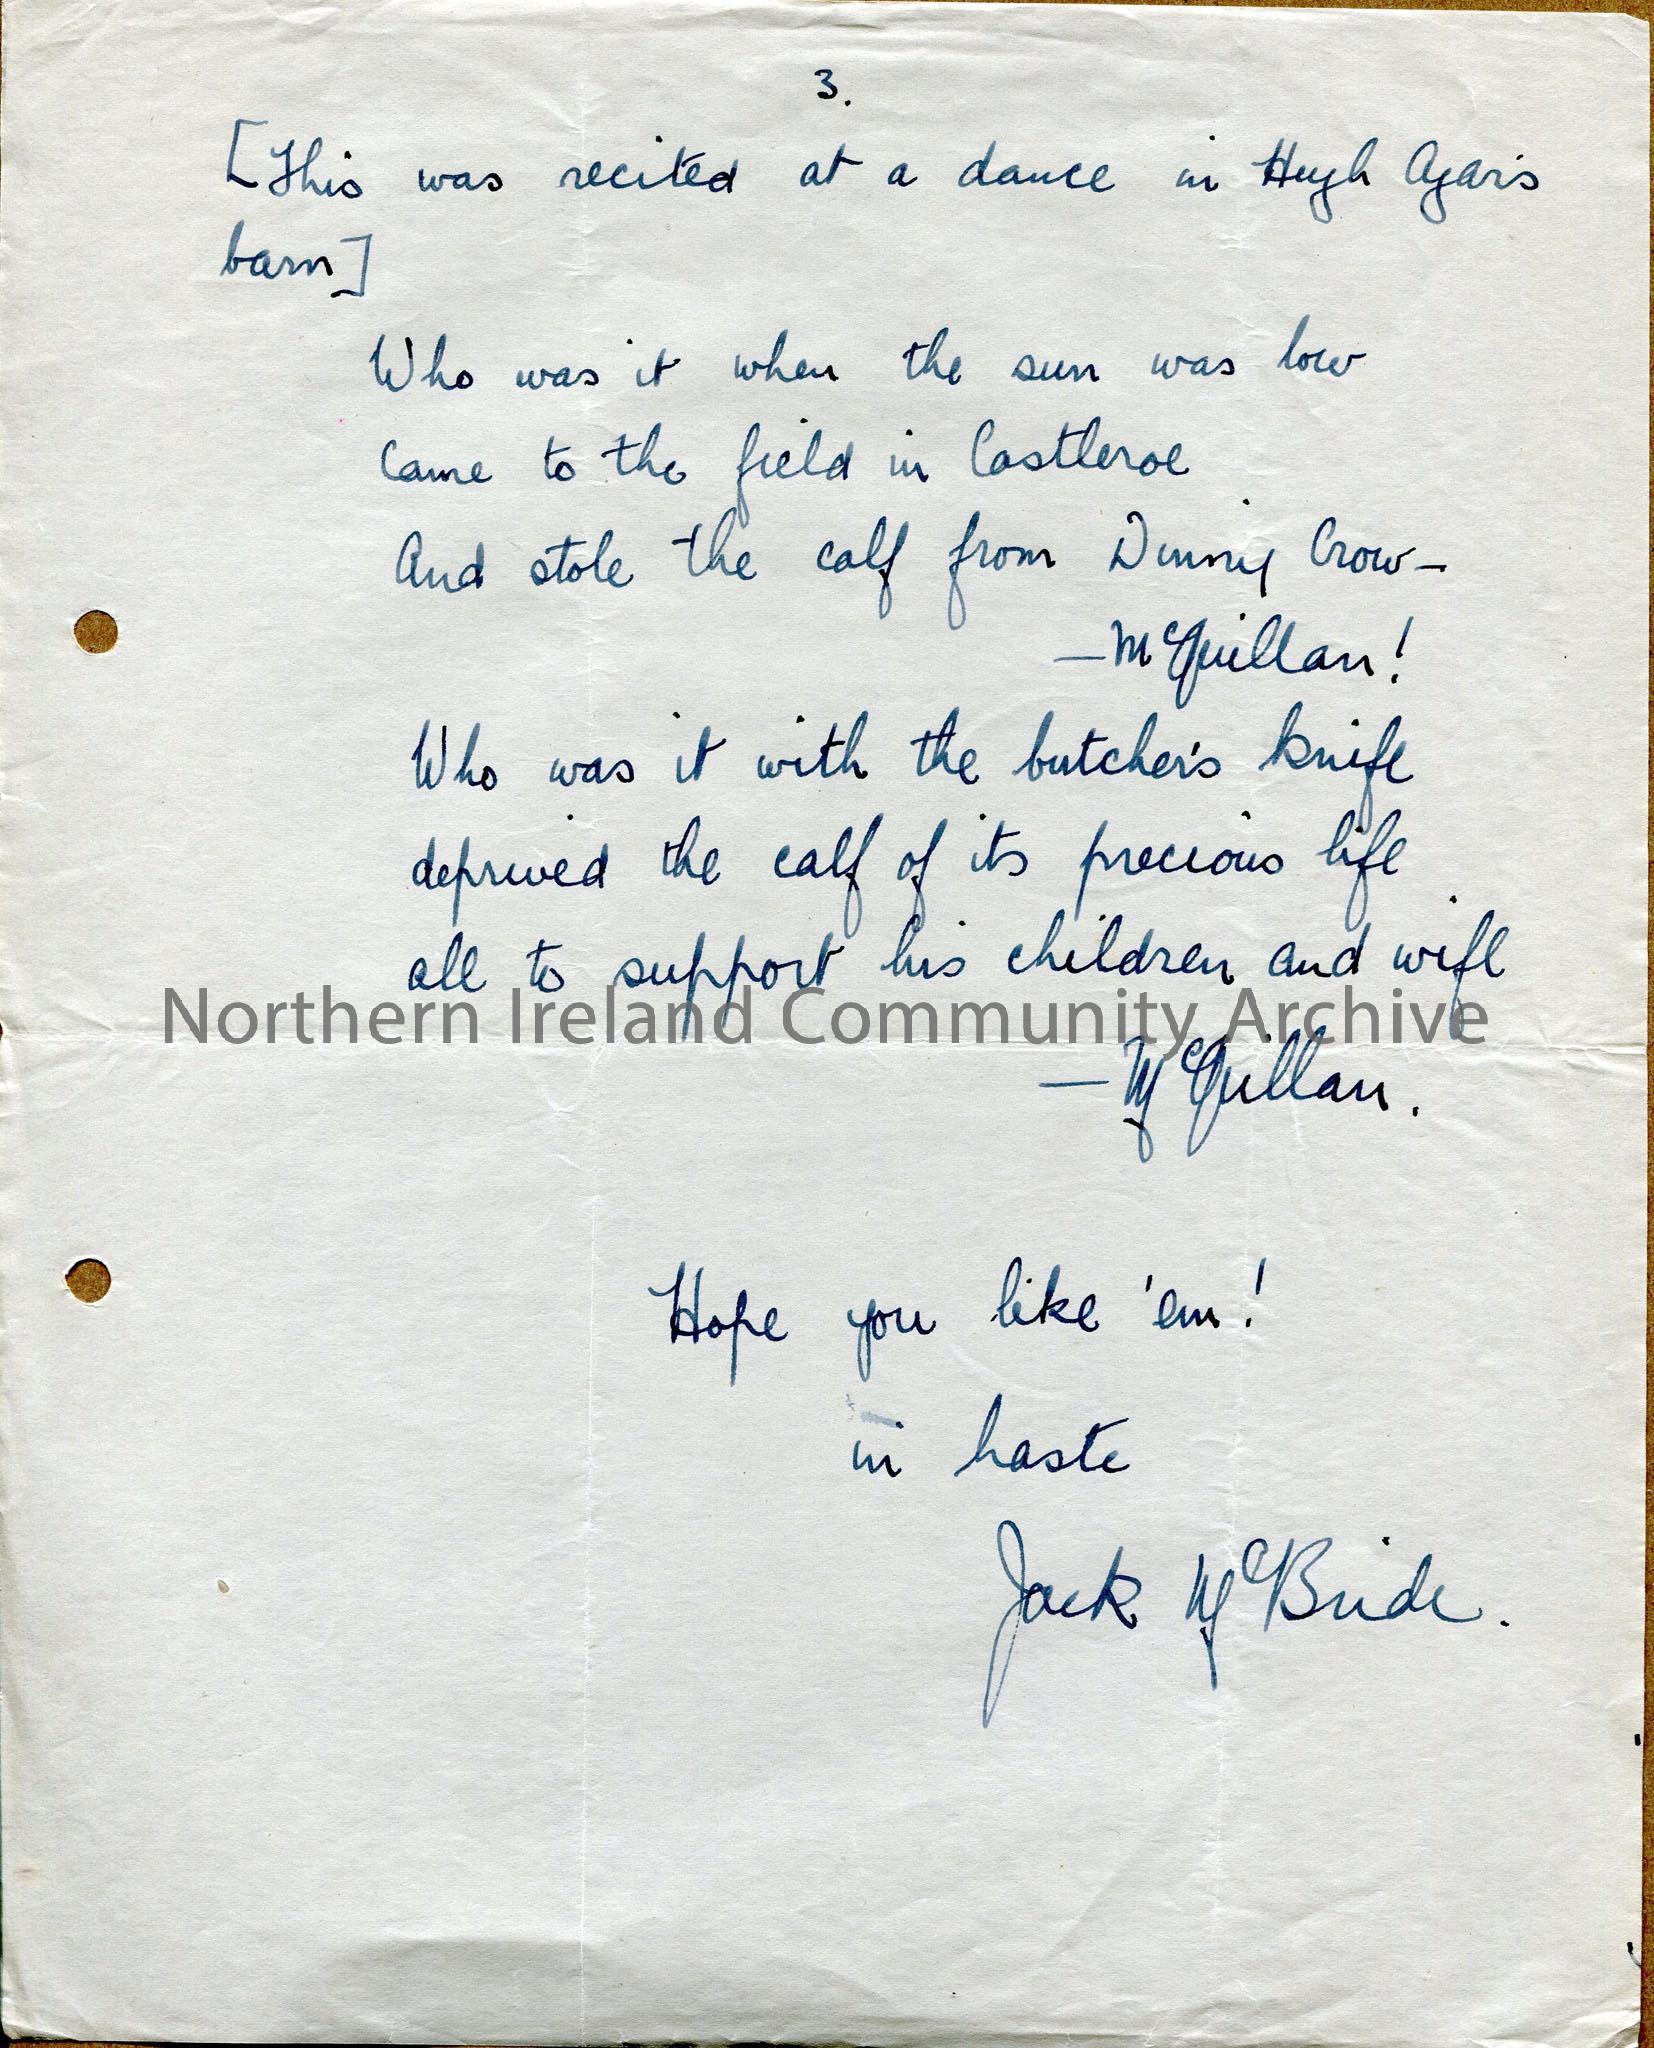 3.
[This was recited at a dance in Hugh Agar's
barn]
Who was it when the sun was low
came to the field in Castleroe
And stole the calf from Dinny Crow—
—McQuillan!
Who was it with the butcher's knife
deprived the calf of its precious life
all to support his children and wife
Northern Ireland Community Archive
—McQuillan.
Hope you like 'em!
in haste
Jack McBride.